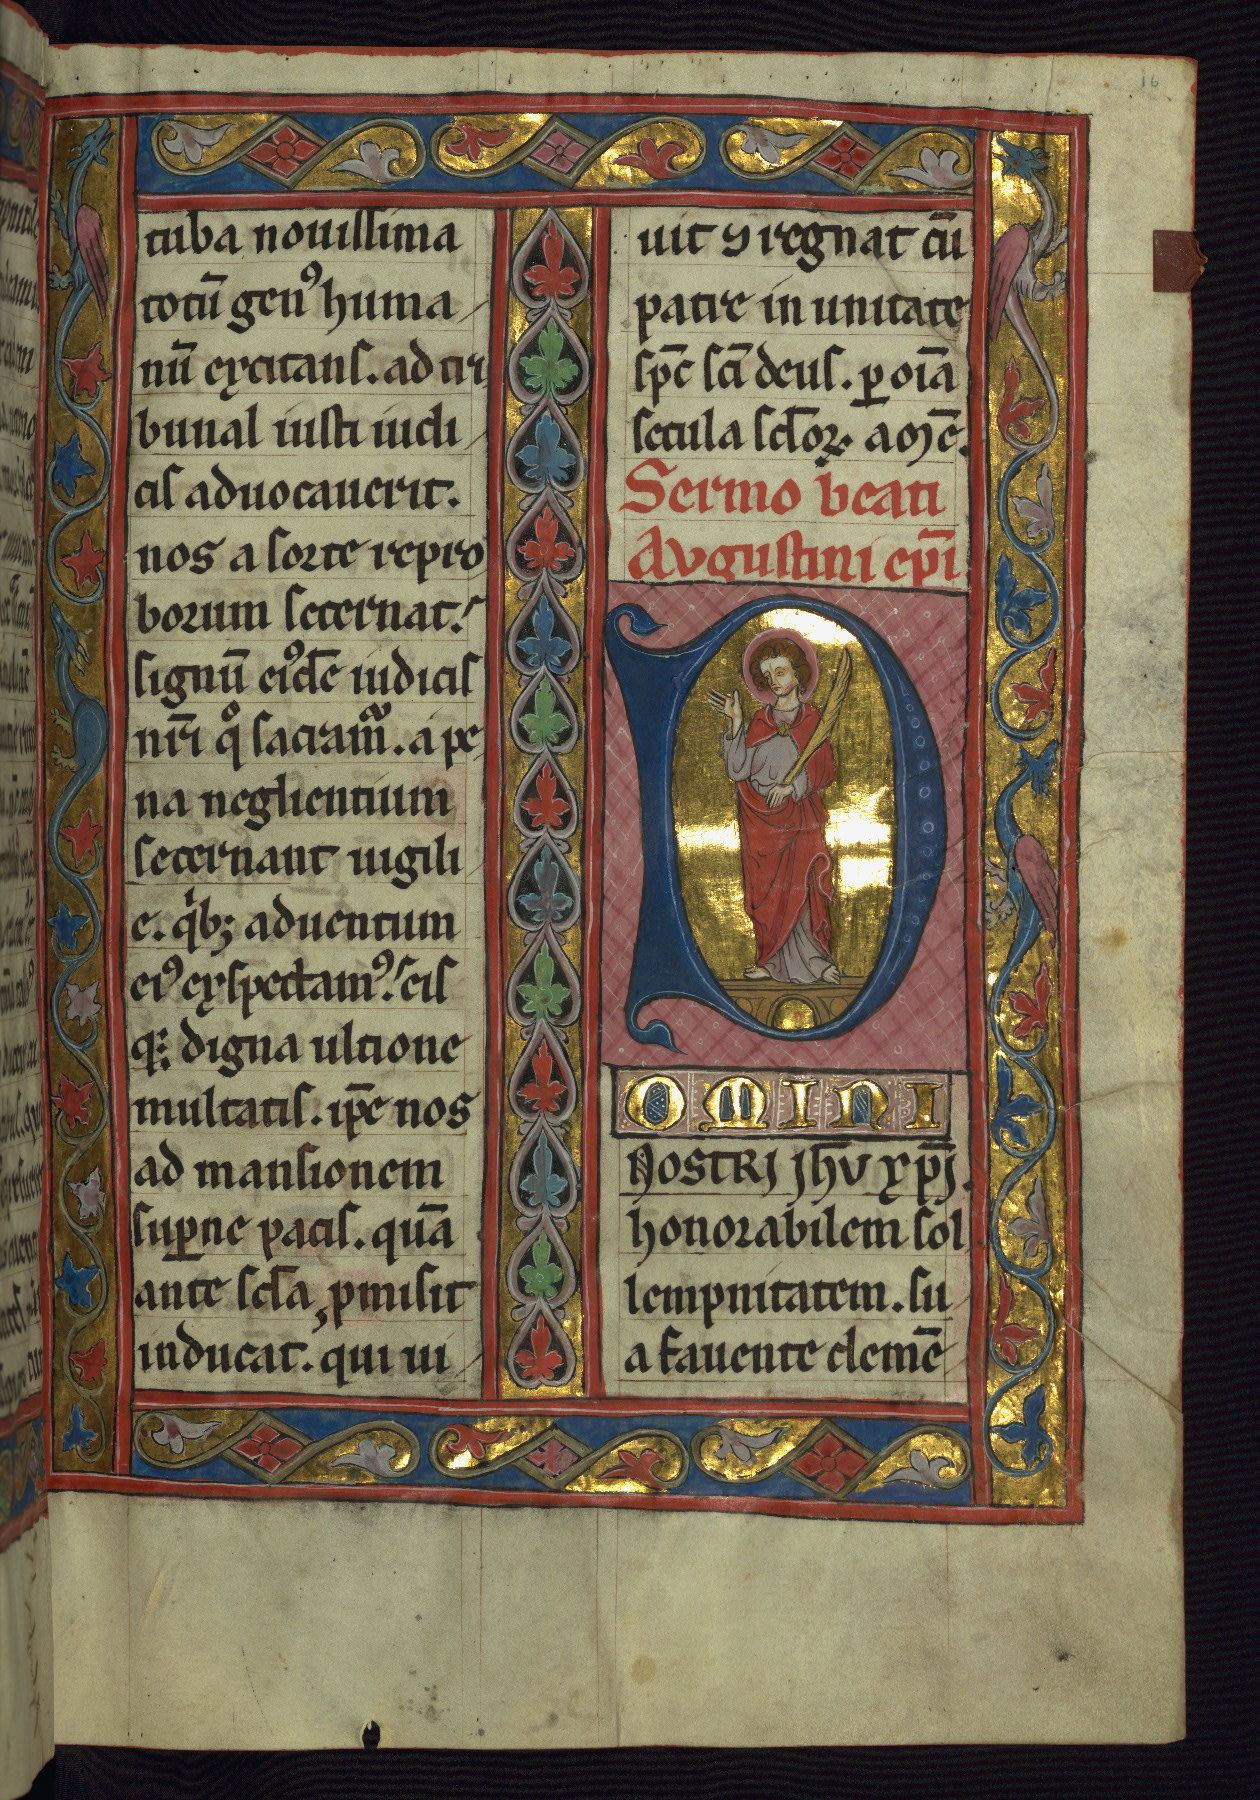 16
tuba nouissima
totū genꝰ huma
nū excitans. ad tri
bunal iusti iudi
cis aduocauerit.
nos a sorte repro
borum secernat.
signū eiꝰdē iudicis
nr̄i qͦ sacram̄. a pe
na neglientium
secernant uigili
e. qͥbꝫ aduentum
eiꝰ exspectamꝰ. eis
qꝫ digna ultione
multatis. ip̄e nos
ad mansionem
suꝑne pacis. quā
ante scl̄a ꝓmisit
inducat. qui ui
uit ⁊ regnat cū
patre in unitate
sp̄c sc̄i deus. ꝑ oīa
secula scl̄oꝝ. amē.
Sermo beati
Augustini ep̄i
D
OMINI
NOSTRI Jhū xp̄i.
honorabilem sol
lempnitatem. su
a fauente clemē